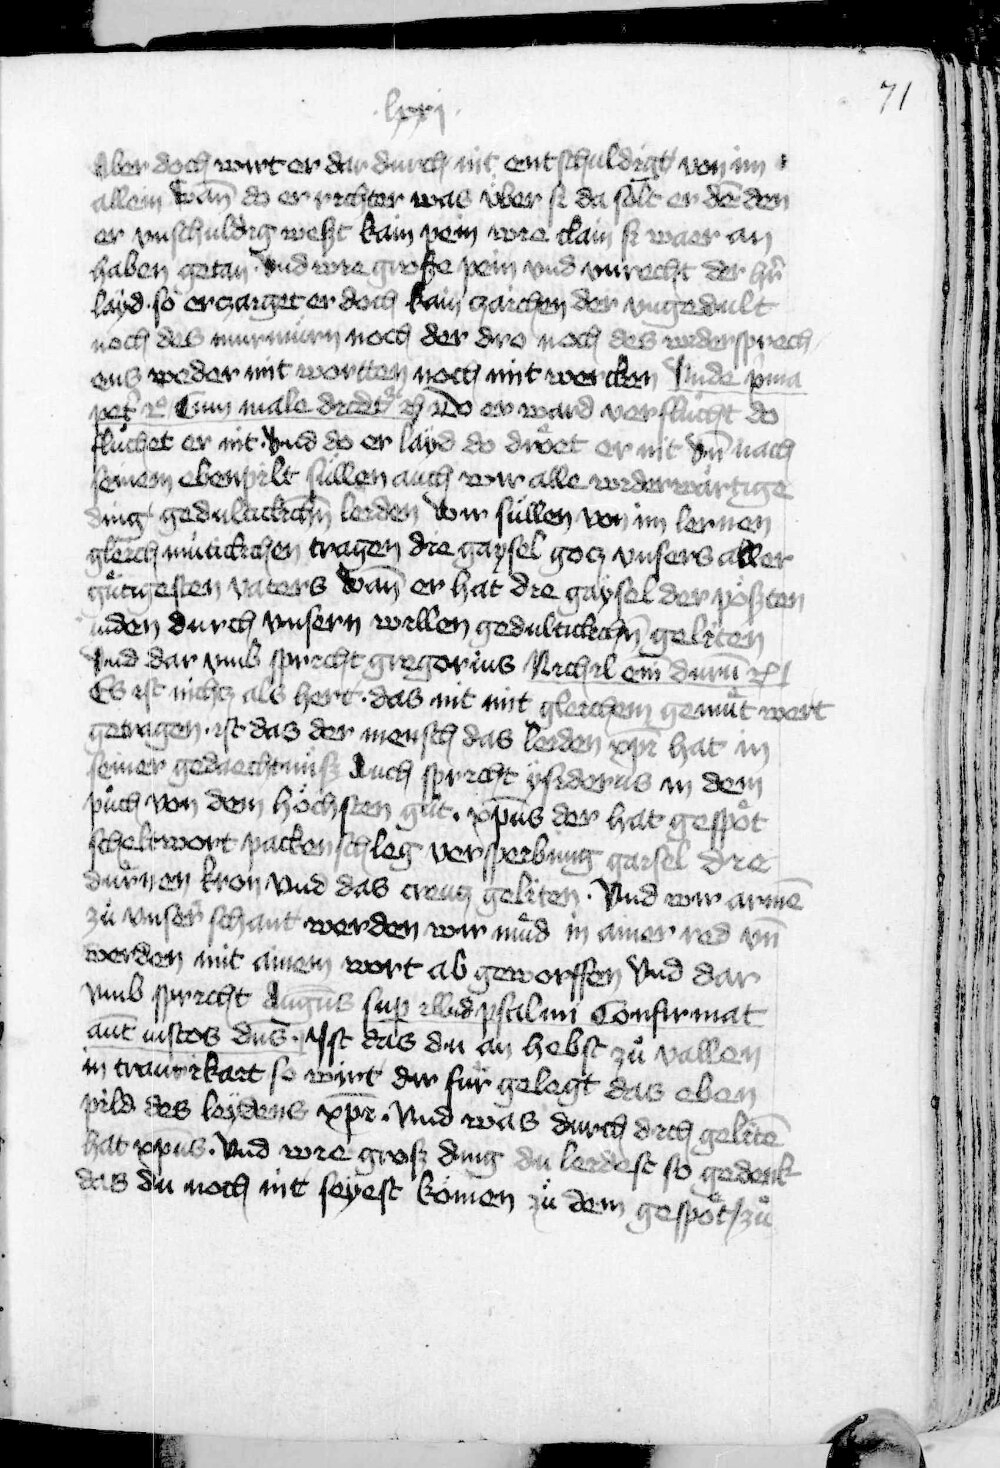 71
·lxxi·
Aber doch wirt er dar durch nit entschuldigt von im
allein Wañ do er richter was über si da solt er dē den
er vnschuldig weszt kain pein wie clain si waer an
haben getan · Vnd wie grosze pein vnd vnrecht der h̄r
layd · so erczaiget er doch kain czaichen der vngedult
noch des murmurn noch der dro noch des widersprech
ens weder mit wortten noch mit wercken Vnde p̄ma
pet̄ 2º Cum male dicet̄ �c Do er ward verflůcht do
flůchet er nit · Vnd do er layd do dröet er nit Vñ nach
seinem ebenpilt süllen auch wir alle widerwärtige
ding gedultickchñ leiden Wir süllen von im lernen
gleich mütickchen tragen die gaysel gocz vnsers aller
gütigesten vaters Wañ er hat die gaysel der pöszten
iuden durch vnsern willen gedultickchñ geliten
Vnd dar vmb spricht gregorius Nichil em̄ durū �c
Es ist nichcz als hert · das nit mit gleichem gemüt wert
getragen · ist das der mensch das leiden xp̄i hat in
seiner gedaechtnüsz Auch spricht ysiderus in dem
půch von dem höchsten gůt · xp̄us der hat gespöt
scheltwort packenschleg verspeibung gaisel die
dürnen kron Vnd das creucz geliten · Vnd wir armē
zů vnser schant werden wir müd in ainer red vñ
werden mit ainem wort ab geworffen Vnd dar
vmb spricht Augus̄ sup illud psalmi Confirmat
aut̄ iustos dn̄s · Ist das du an hebst zů vallen
in traurikait so wirt dir für gelegt das eben
pild des leydens xp̄i · Vnd was durch dich gelitē
hat xp̄us · Vnd wie grosz ding du leidest so gedenk
das du noch nit seyest kömen zů dem gespöt / zů